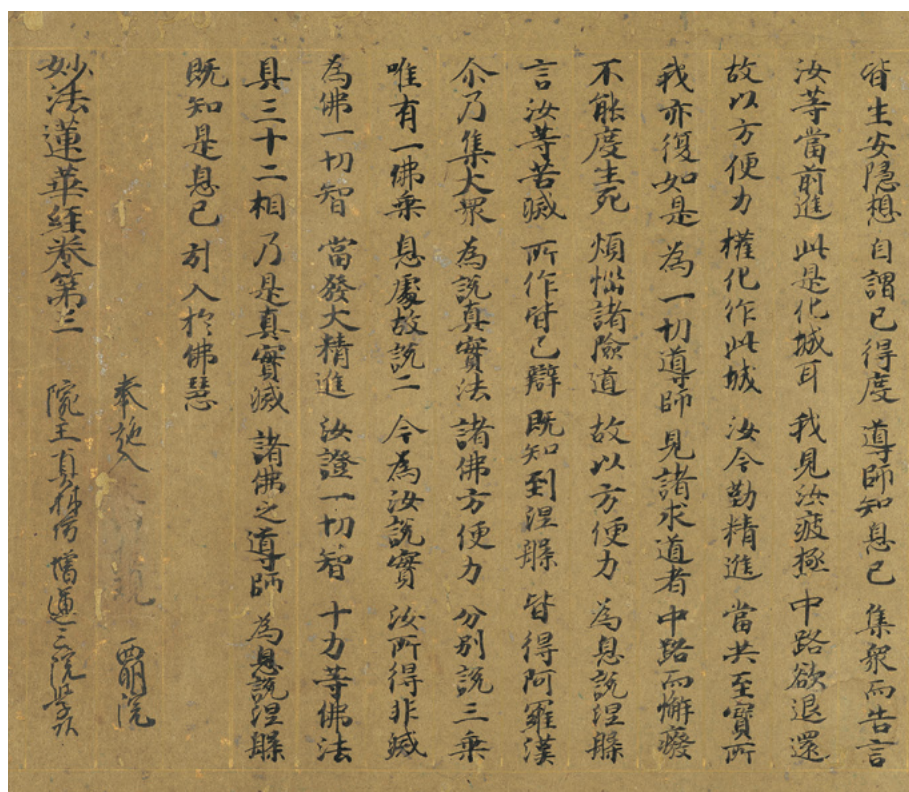 皆生安隱想 自謂已得度 導師知息已 集衆而告言
汝等當前進 此是化城耳 我見汝疲極 中路欲退還
故以方便力 權化作此城 汝今勤精進 當共至寶所
我亦復如是 為一切導師 見諸求道者 中路而懈癈
不能度生死 煩惱諸險道 故以方便力 為息說涅槃
言汝等苦滅 所作皆已辯 既知到涅槃 皆得阿羅漢
尒乃集大衆 為說真實法 諸佛方便力 分別說三乘
唯有一佛乘 息處故說二 今為汝說實 汝所得非滅
為佛一切智 當發大精進 汝證一切智 十力等佛法
具三十二相 乃是真實滅 諸佛之導師 為息說涅槃
既知是息已 引入於佛慧
妙法蓮華經卷第三
奉施入 院
院主真 僧 三院